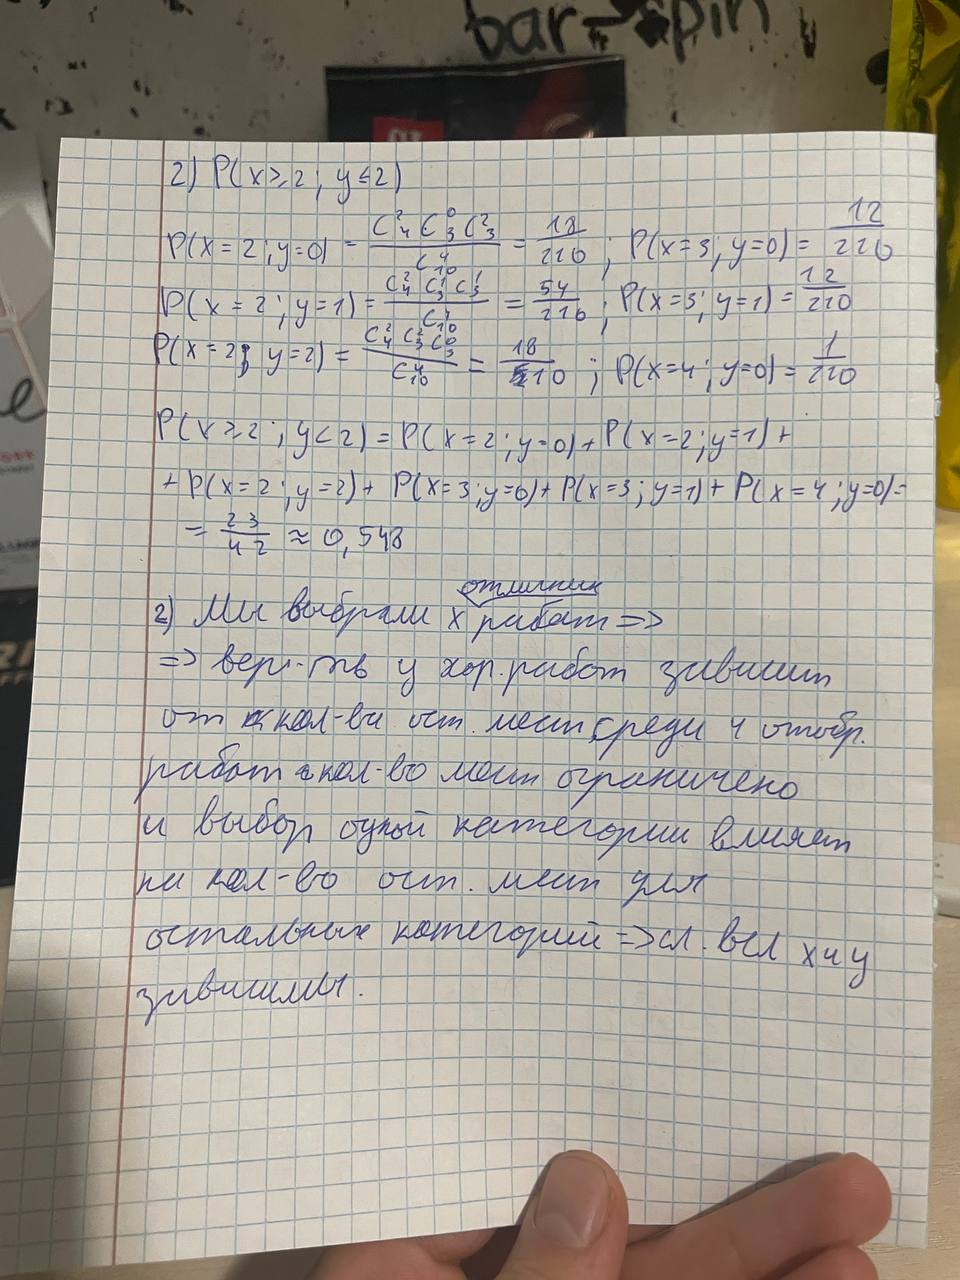 bar→spin
2) P(x≥2; y≤2)
P(x=2; y=0) = C²₄ C⁰₃ C²₃ / C⁴₁₀ = 18/210 ; P(x=3; y=0) = 12/210
P(x=2; y=1) = C²₄ C¹₃ C¹₃ / C⁴₁₀ = 54/210 ; P(x=3; y=1) = 12/210
P(x=2; y=2) = C²₄ C²₃ C⁰₃ / C⁴₁₀ = 18/210 ; P(x=4; y=0) = 1/210
P(x≥2; y≤2) = P(x=2; y=0) + P(x=2; y=1) +
+ P(x=2; y=2) + P(x=3; y=0) + P(x=3; y=1) + P(x=4; y=0) =
= 23/42 ≈ 0,548
отличник
2) Мы выбрали x работ =>
=> вер-ть y хор. работ зависит
от кол-ва ост. мест среди 4 отобр.
работ кол-во мест ограничено
и выбор одной категории влияет
на кол-во ост. мест для
остальных категорий => сл. вел x и y
зависимы.